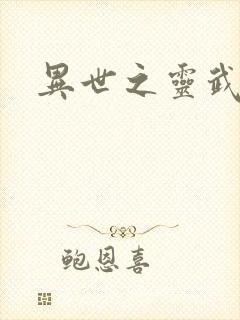 異世之靈武
鲍恩喜